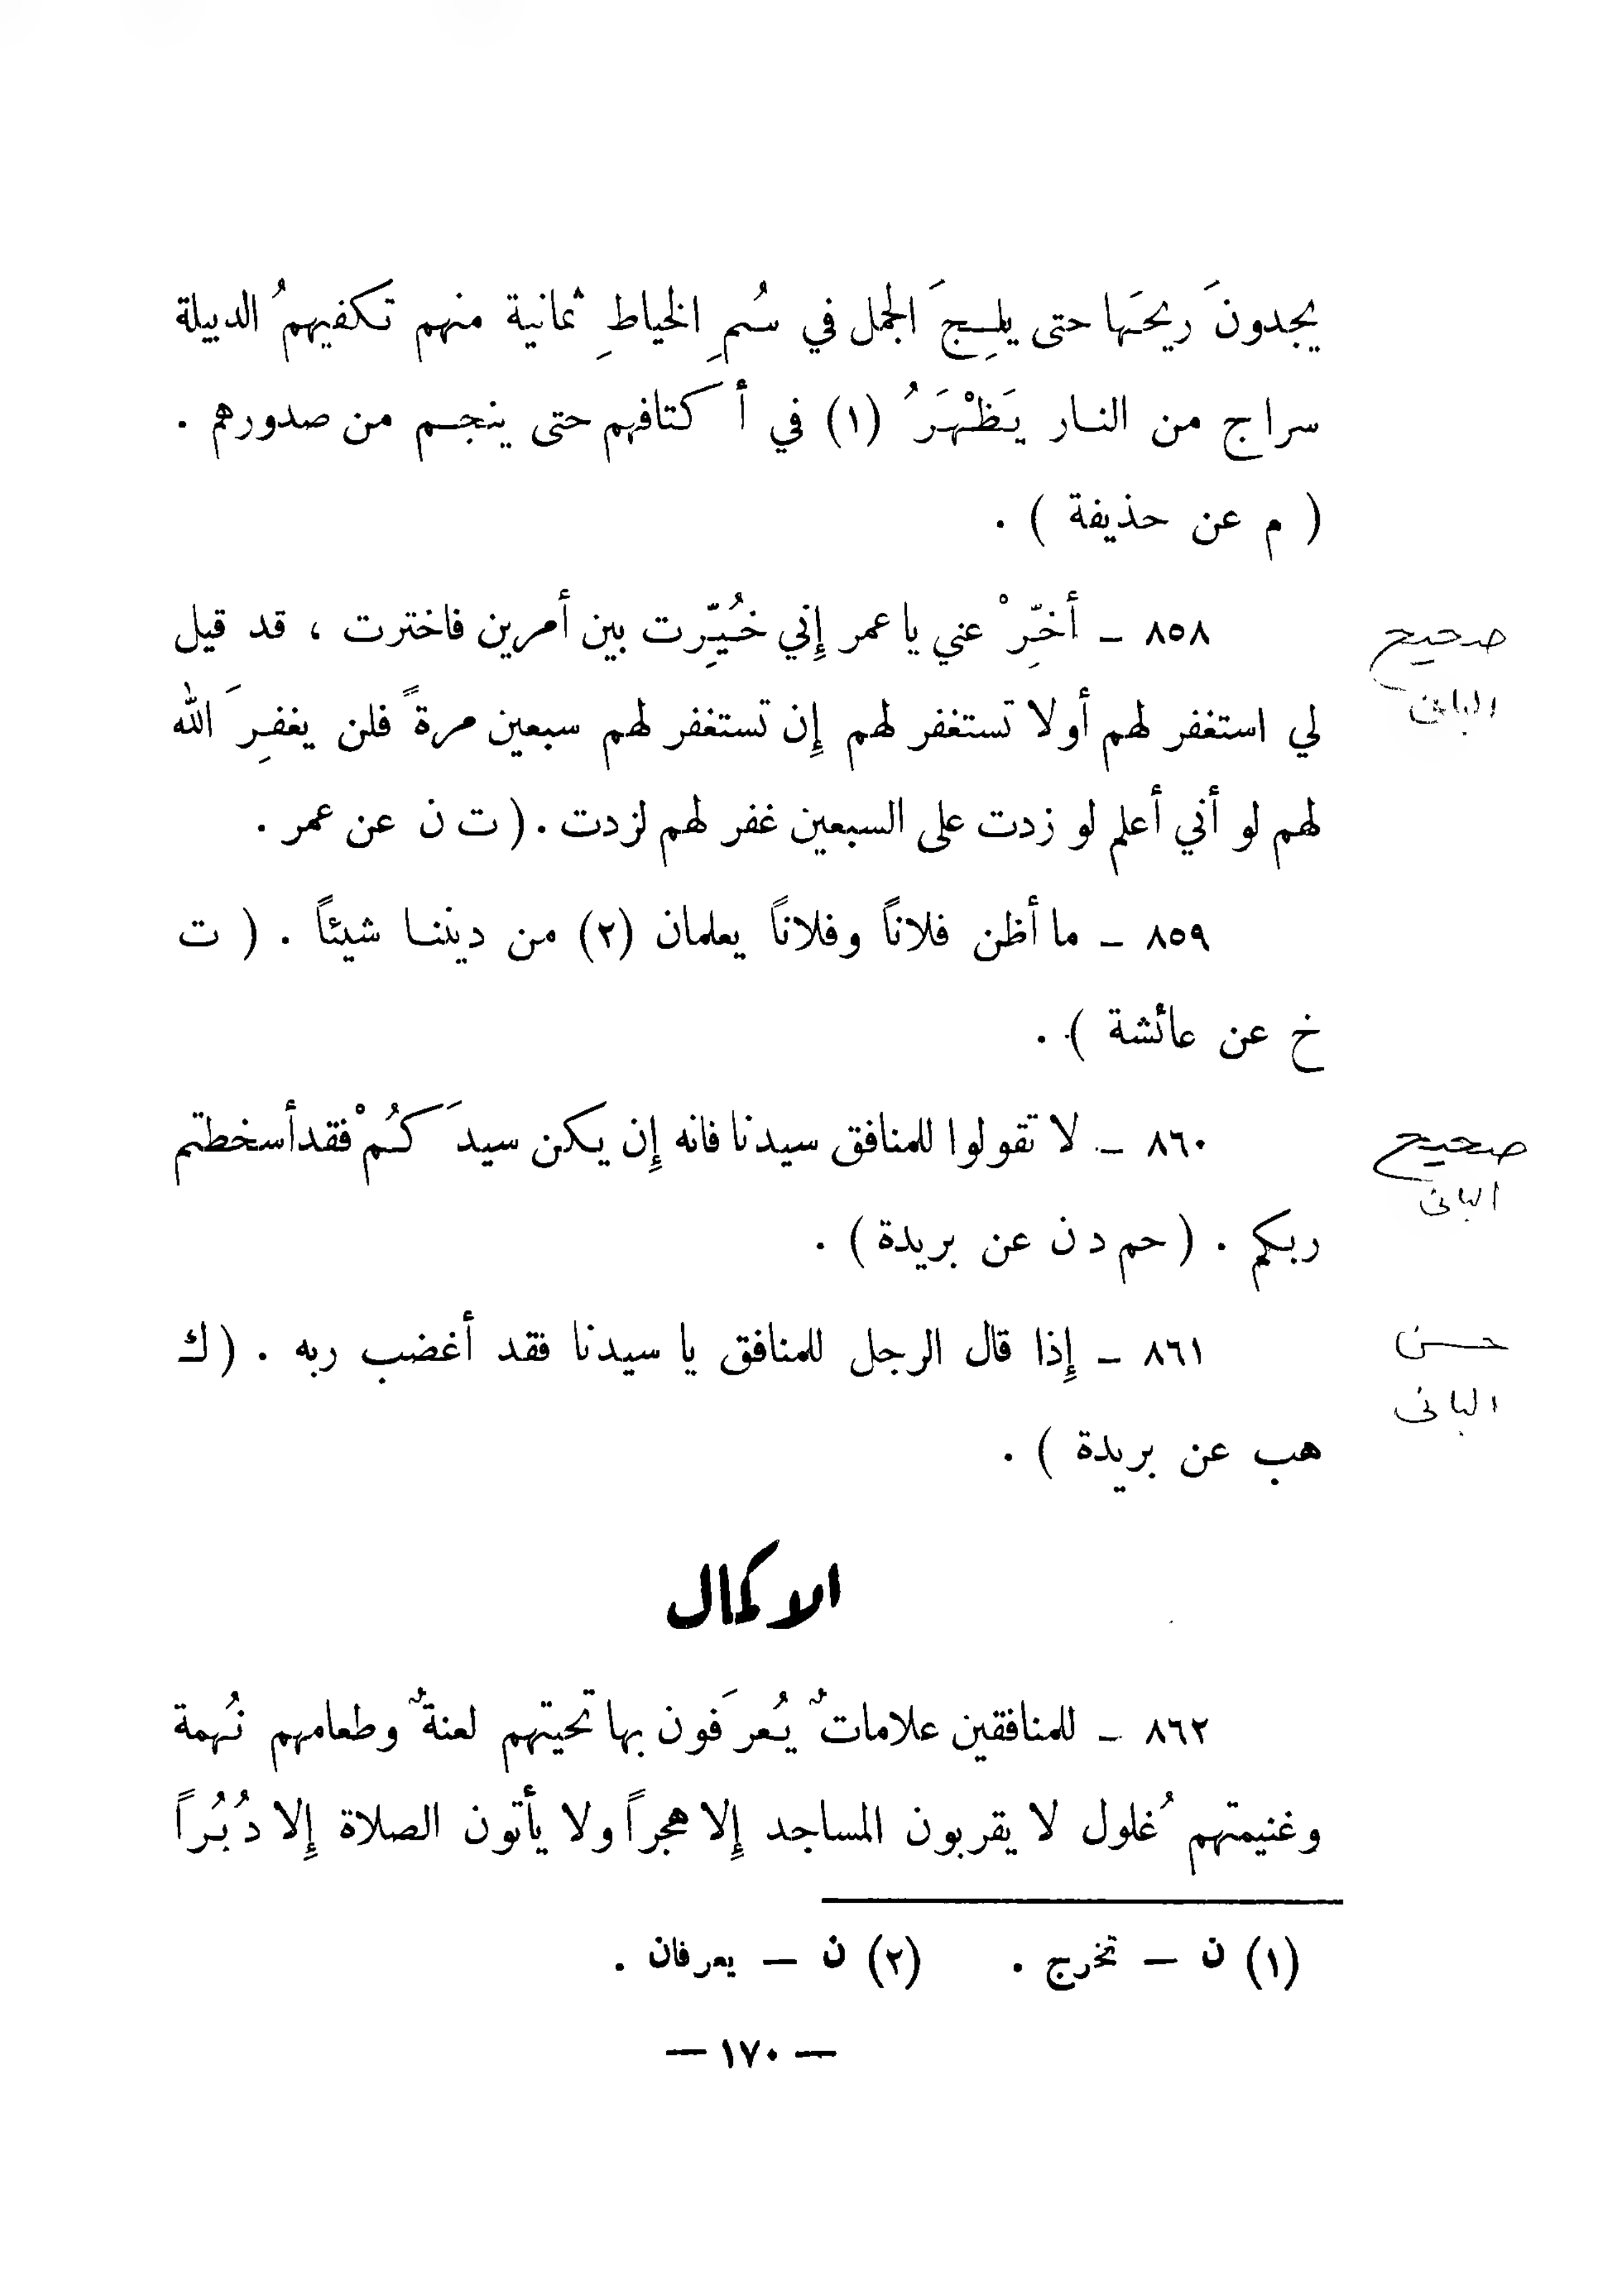 يجدونَ ريحَها حتى يلِجَ الجمل في سُمِ الخياطِ ثمانية منهم تكفيهمُ الدبيلة
سراج من النار يَظْهَرُ (١) في أكتافهم حتى ينجم من صدورهم .
( م عن حذيفة ) .
٨٥٨ – أخِّرْ عني يا عمر إِني خُيِّرت بين أمرين فاخترت ، قد قيل
صحيح
لي استغفر لهم أولا تستغفر لهم إِن تستغفر لهم سبعين مرةً فلن يغفرِ َ الله
البانى
لهم لو أني أعلم لو زدت على السبعين غفر لهم لزدت . ( ت ن عن عمر .
٨٥٩ – ما أظن فلاناً وفلاناً يعلمان (٢) من ديننا شيئاً . ( ت
خ عن عائشة ) .
٨٦٠ – لا تقولوا للمنافق سيدنا فانه إِن يكن سيدَكُمْ فقد أسخطتم
صحيح
البانى
ربكم . ( حم د ن عن بريدة ) .
٨٦١ – إِذا قال الرجل للمنافق يا سيدنا فقد أغضب ربه . ( ك
حسن
البانى
هب عن بريدة ) .
الاكمال
٨٦٢ – للمنافقين علاماتٌ يُعرَفون بها تحيتهم لعنةٌ وطعامهم نُهمة
وغنيمتهم غُلول لا يقربون المساجد إِلا هجراً ولا يأتون الصلاة إِلا دُبُراً
(١) ن – تخرج . (٢) ن – يعرفان .
— ١٧٠ —